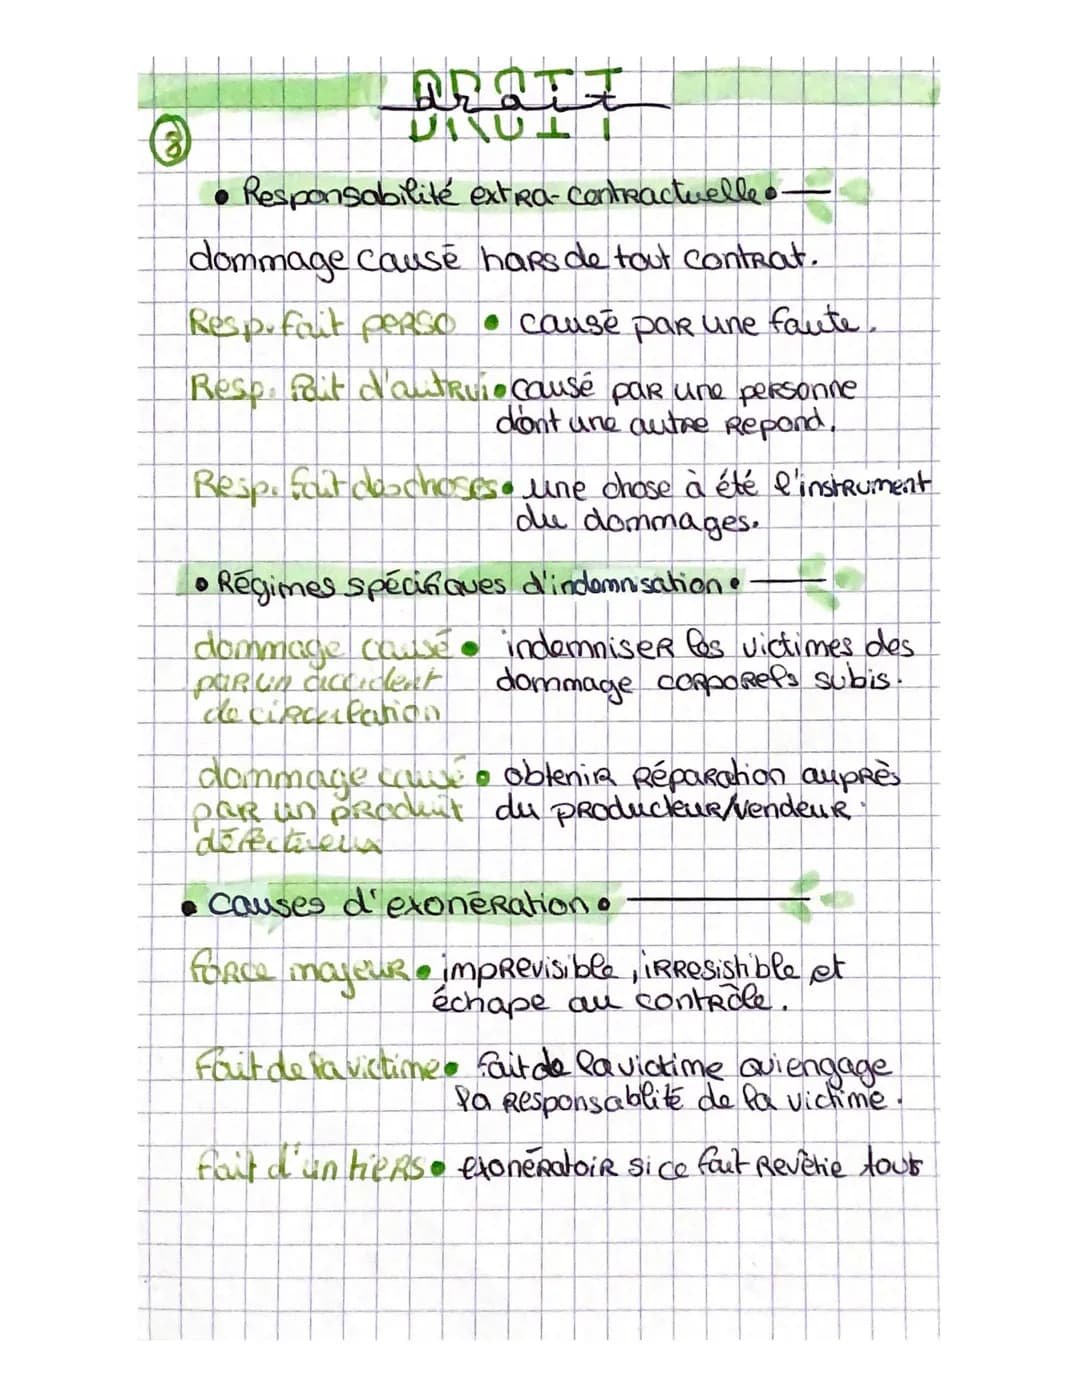 droit
8
• Responsabilité extra-contractuelle •
dommage causé hors de tout contrat.
Resp. fait perso • causé par une faute.
Resp. fait d'autrui • causé par une personne
dont une autre repond.
Resp. fait des choses • une chose à été l'instrument
du dommages.
• Régimes spécifiques d'indemnisation •
dommage causé • indemniser les victimes des
par un accident dommage corporels subis.
de circulation
dommage causé • obtenir réparation auprès
par un produit du producteur/vendeur.
défectueux
• causes d'exonération •
force majeur • imprevisible, irresistible et
échape au contrôle.
fait de la victime • fait de la victime qui engage
la responsablité de la victime.
fait d'un tiers • exonératoir si ce fait revêtie tous